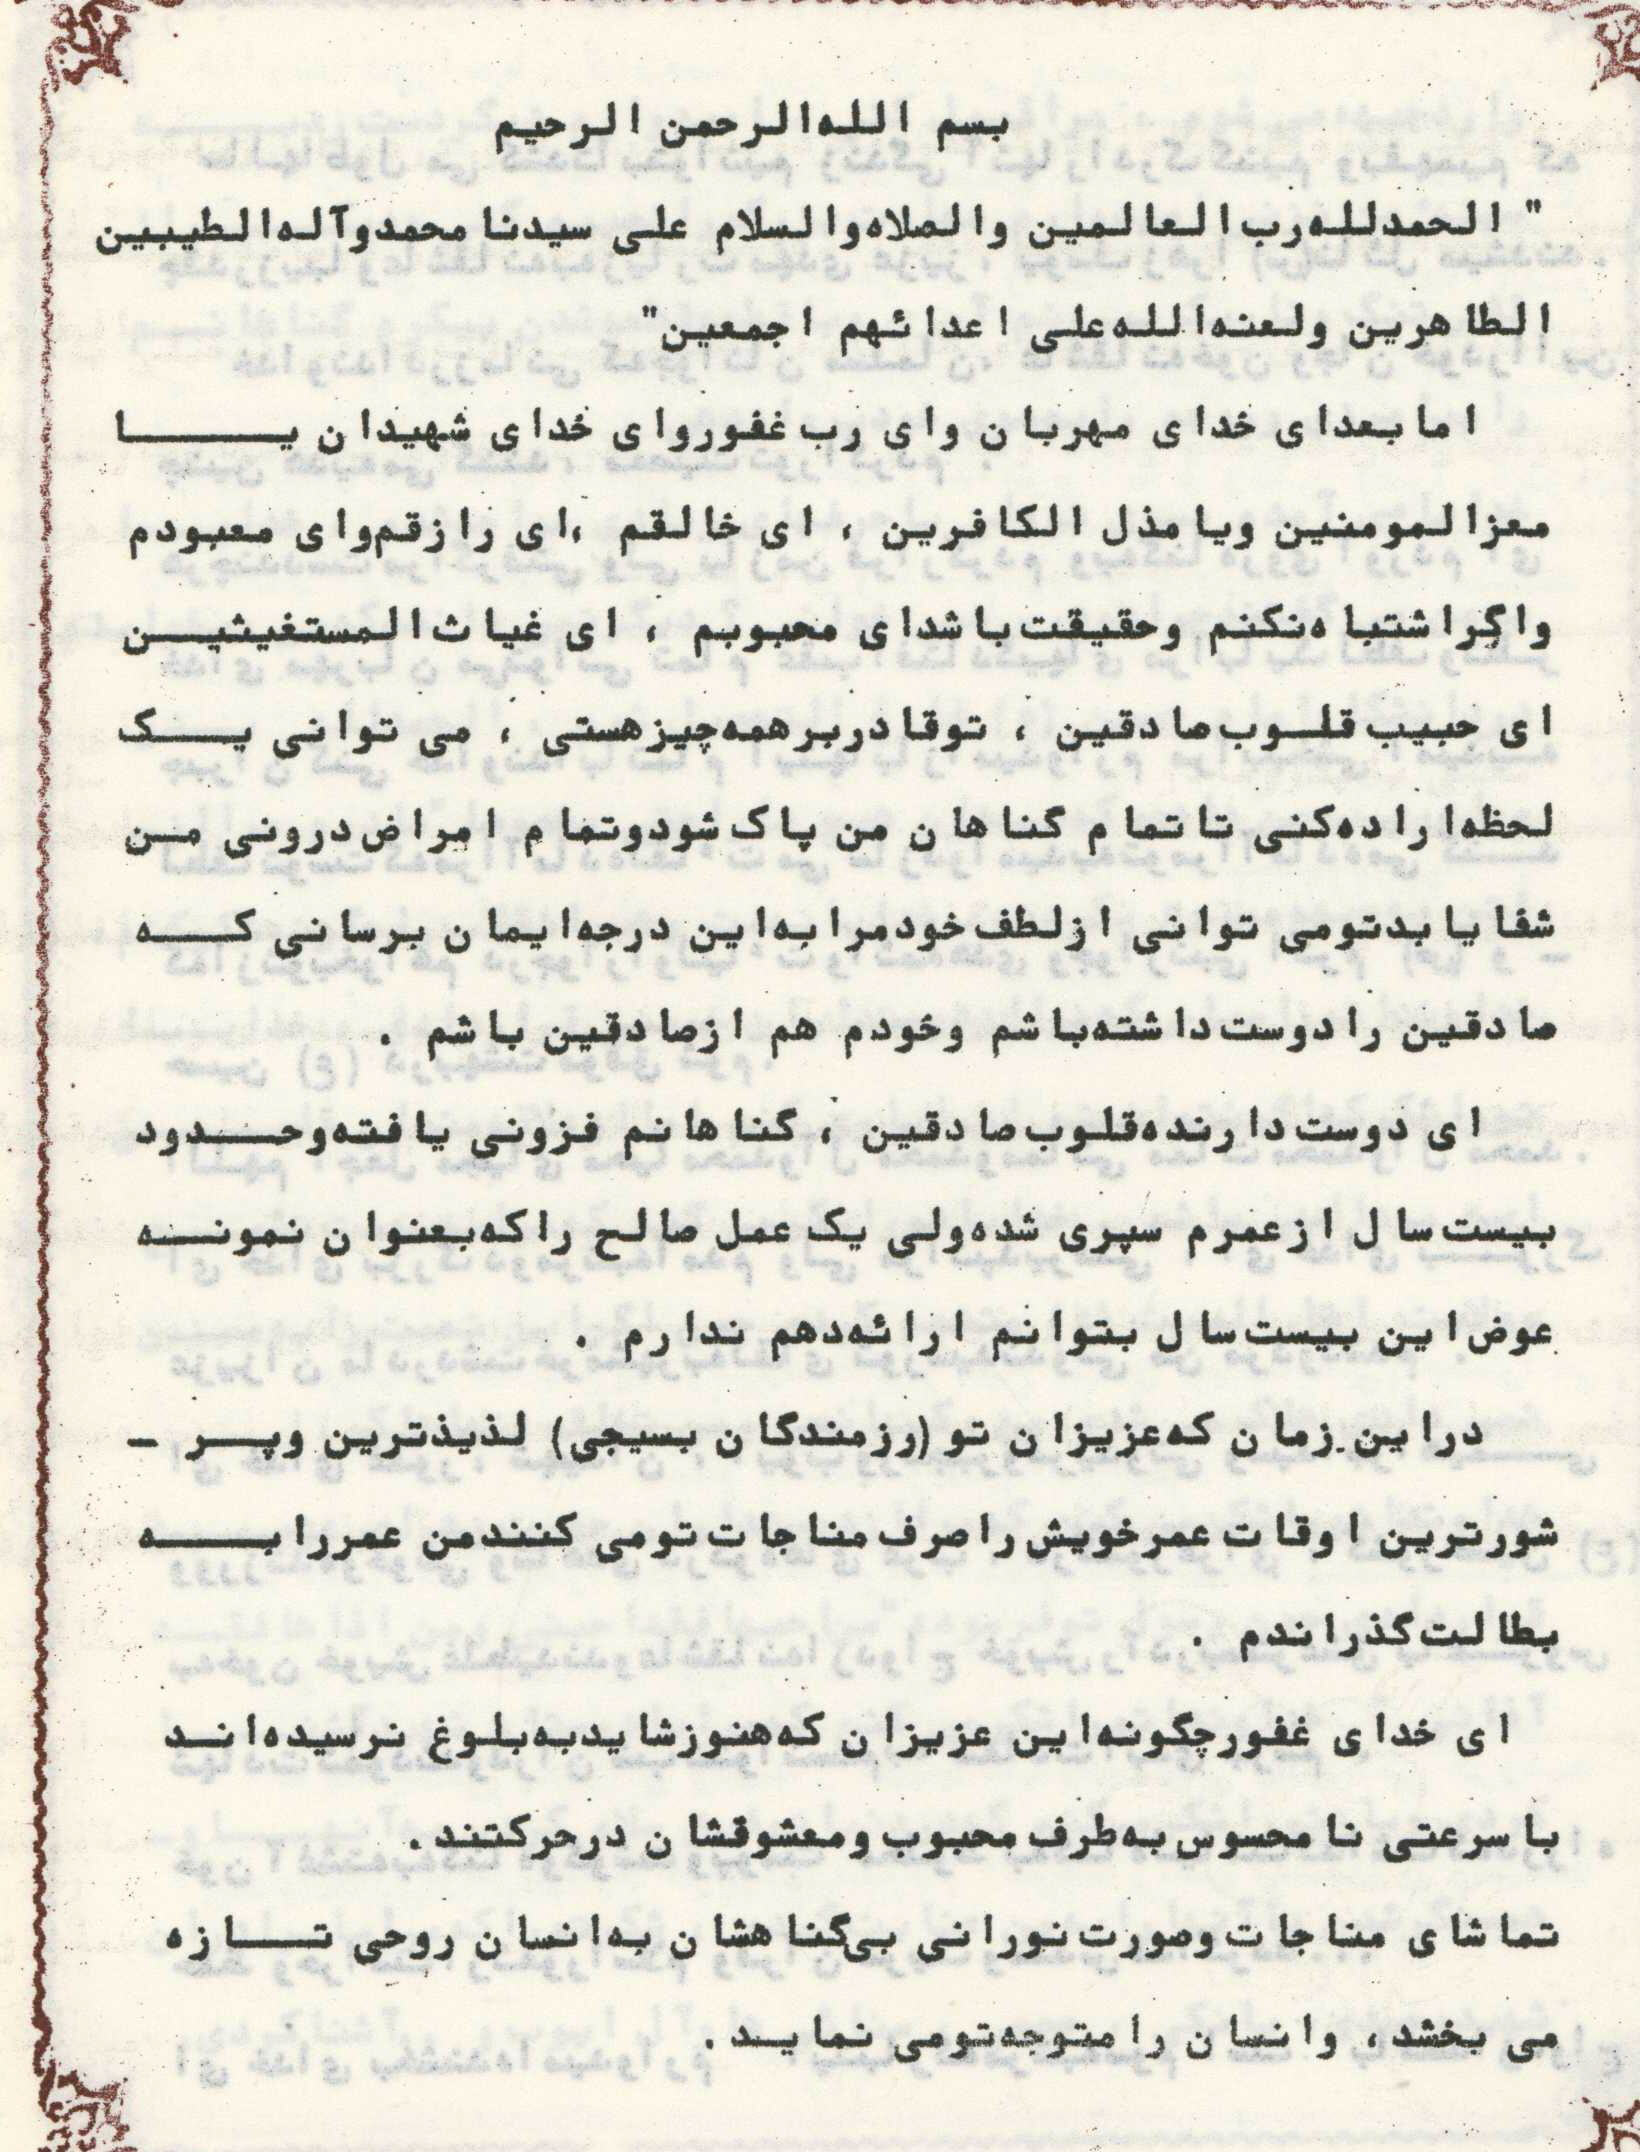 بسم الله الرحمن الرحیم
" الحمدلله رب العالمین والصلاه والسلام علی سیدنا محمد وآله الطیبین
الطاهرین ولعنه الله علی اعدائهم اجمعین"
اما بعد ای خدای مهربان وای رب غفور وای خدای شهیدان یا
معز المومنین ویا مذل الکافرین ، ای خالقم ،ای رازقم وای معبودم
واگر اشتباه نکنم وحقیقت باشد ای محبوبم ، ای غیاث المستغیثین
ای حبیب قلوب صادقین ، تو قادر بر همه چیز هستی ، می توانی یک
لحظه اراده کنی تا تمام گناهان من پاک شود وتمام امراض درونی من
شفا یابد تو می توانی از لطف خود مرا به این درجه ایمان برسانی که
صادقین را دوست داشته باشم وخودم هم از صادقین باشم .
ای دوست دارنده قلوب صادقین ، گناهانم فزونی یافته وحدود
بیست سال از عمرم سپری شده ولی یک عمل صالح را که بعنوان نمونه
عوض این بیست سال بتوانم ارائه دهم ندارم .
در این زمان که عزیزان تو (رزمندگان بسیجی) لذیذترین وپر -
شورترین اوقات عمر خویش را صرف مناجات تو می کنند من عمر را به
بطالت گذراندم .
ای خدای غفور چگونه این عزیزان که هنوز شاید به بلوغ نرسیده اند
با سرعتی نا محسوس به طرف محبوب ومعشوقشان در حرکتند .
تماشای مناجات وصورت نورانی بی‌گناهشان به انسان روحی تازه
می بخشد ، وانسان را متوجه تو می نماید .